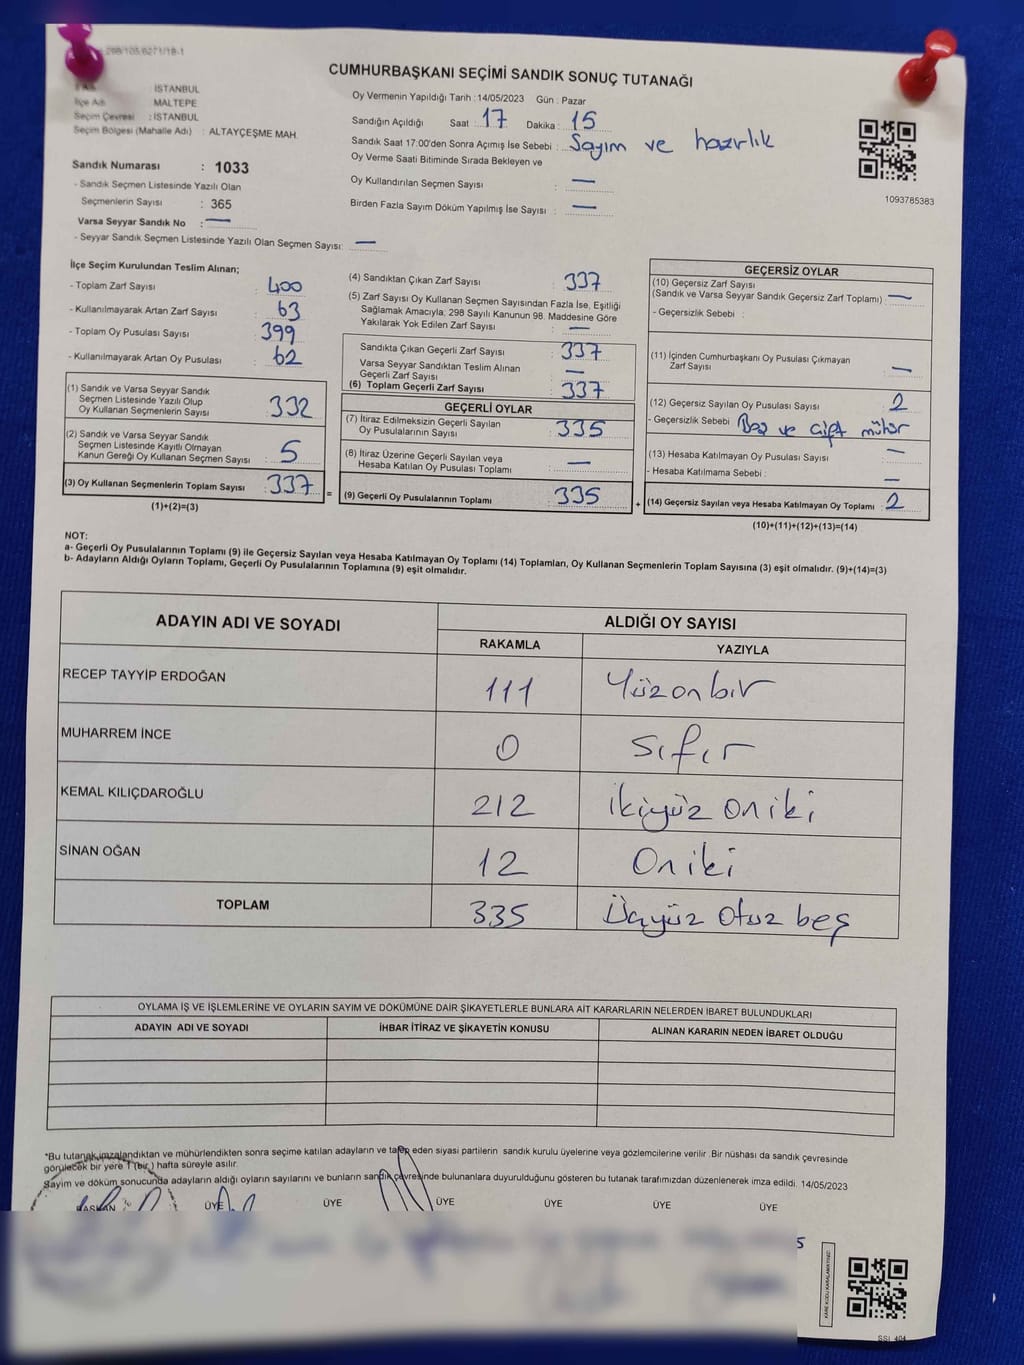 298/105/6271/18-1
CUMHURBAŞKANI SEÇİMİ SANDIK SONUÇ TUTANAĞI
: İSTANBUL
İlçe Adı : MALTEPE
Seçim Çevresi : İSTANBUL
Seçim Bölgesi (Mahalle Adı) : ALTAYÇEŞME MAH.
Oy Vermenin Yapıldığı Tarih : 14/05/2023 Gün : Pazar
Sandığın Açıldığı Saat : 17 Dakika : 15
Sandık Saat 17:00'den Sonra Açımış İse Sebebi : Sayım ve hazırlık
Oy Verme Saati Bitiminde Sırada Bekleyen ve
Oy Kullandırılan Seçmen Sayısı : —
Birden Fazla Sayım Döküm Yapılmış İse Sayısı : —
1093785383
Sandık Numarası : 1033
- Sandık Seçmen Listesinde Yazılı Olan
Seçmenlerin Sayısı : 365
Varsa Seyyar Sandık No : —
- Seyyar Sandık Seçmen Listesinde Yazılı Olan Seçmen Sayısı: —
İlçe Seçim Kurulundan Teslim Alınan;
- Toplam Zarf Sayısı : 400
- Kullanılmayarak Artan Zarf Sayısı : 63
- Toplam Oy Pusulası Sayısı : 399
- Kullanılmayarak Artan Oy Pusulası : 62
(1) Sandık ve Varsa Seyyar Sandık
Seçmen Listesinde Yazılı Olup
Oy Kullanan Seçmenlerin Sayısı : 332
(2) Sandık ve Varsa Seyyar Sandık
Seçmen Listesinde Kayıtlı Olmayan
Kanun Gereği Oy Kullanan Seçmen Sayısı : 5
(3) Oy Kullanan Seçmenlerin Toplam Sayısı : 337
(1)+(2)=(3)
=
(4) Sandıktan Çıkan Zarf Sayısı : 337
(5) Zarf Sayısı Oy Kullanan Seçmen Sayısından Fazla İse, Eşitliği
Sağlamak Amacıyla; 298 Sayılı Kanunun 98. Maddesine Göre
Yakılarak Yok Edilen Zarf Sayısı : —
Sandıkta Çıkan Geçerli Zarf Sayısı : 337
Varsa Seyyar Sandıktan Teslim Alınan
Geçerli Zarf Sayısı : —
(6) Toplam Geçerli Zarf Sayısı : 337
GEÇERLİ OYLAR
(7) İtiraz Edilmeksizin Geçerli Sayılan
Oy Pusulalarının Sayısı : 335
(8) İtiraz Üzerine Geçerli Sayılan veya
Hesaba Katılan Oy Pusulası Toplamı : —
(9) Geçerli Oy Pusulalarının Toplamı : 335
+
GEÇERSİZ OYLAR
(10) Geçersiz Zarf Sayısı
(Sandık ve Varsa Seyyar Sandık Geçersiz Zarf Toplamı) : —
- Geçersizlik Sebebi :
(11) İçinden Cumhurbaşkanı Oy Pusulası Çıkmayan
Zarf Sayısı : —
(12) Geçersiz Sayılan Oy Pusulası Sayısı : 2
- Geçersizlik Sebebi : Boş ve çift mühür
(13) Hesaba Katılmayan Oy Pusulası Sayısı : —
- Hesaba Katılmama Sebebi : —
(14) Geçersiz Sayılan veya Hesaba Katılmayan Oy Toplamı : 2
(10)+(11)+(12)+(13)=(14)
NOT:
a- Geçerli Oy Pusulalarının Toplamı (9) ile Geçersiz Sayılan veya Hesaba Katılmayan Oy Toplamı (14) Toplamları, Oy Kullanan Seçmenlerin Toplam Sayısına (3) eşit olmalıdır. (9)+(14)=(3)
b- Adayların Aldığı Oyların Toplamı, Geçerli Oy Pusulalarının Toplamına (9) eşit olmalıdır.
ADAYIN ADI VE SOYADI ALDIĞI OY SAYISI
RAKAMLA YAZIYLA
RECEP TAYYİP ERDOĞAN 111 Yüzonbir
MUHARREM İNCE 0 Sıfır
KEMAL KILIÇDAROĞLU 212 İkiyüz oniki
SİNAN OĞAN 12 Oniki
TOPLAM 335 Üçyüz Otuz beş
OYLAMA İŞ VE İŞLEMLERİNE VE OYLARIN SAYIM VE DÖKÜMÜNE DAİR ŞİKAYETLERLE BUNLARA AİT KARARLARIN NELERDEN İBARET BULUNDUKLARI
ADAYIN ADI VE SOYADI İHBAR İTİRAZ VE ŞİKAYETİN KONUSU ALINAN KARARIN NEDEN İBARET OLDUĞU
*Bu tutanak imzalandıktan ve mühürlendikten sonra seçime katılan adayların ve talep eden siyasi partilerin sandık kurulu üyelerine veya gözlemcilerine verilir. Bir nüshası da sandık çevresinde
görülecek bir yere 1 (bir) hafta süreyle asılır.
Sayım ve döküm sonucunda adayların aldığı oyların sayılarını ve bunların sandık çevresinde bulunanlara duyurulduğunu gösteren bu tutanak tarafımızdan düzenlenerek imza edildi. 14/05/2023
BAŞKAN ÜYE ÜYE ÜYE ÜYE ÜYE ÜYE
5
SSİ 404